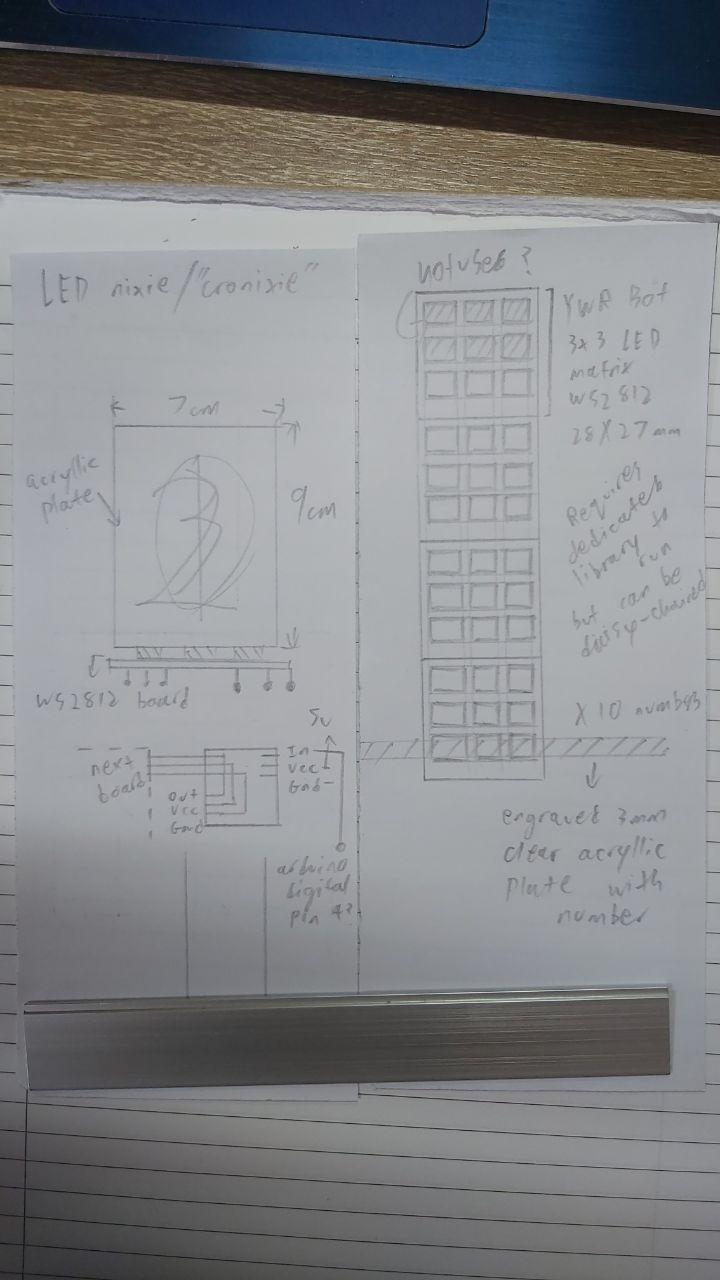 LED nixie/"cronixie"
7cm
acryllic
plate
9cm
3
WS2812 board
5v
next
board
In
Vcc
Gnd
Out
Vcc
Gnd
arduino
digital
pin 4?
not used?
YWR Bot
3x3 LED
matrix
WS2812
28X27mm
Requires
dedicated
library to
run
but can be
daisy-chained
X 10 numbers
engraved 3mm
clear acryllic
plate with
number